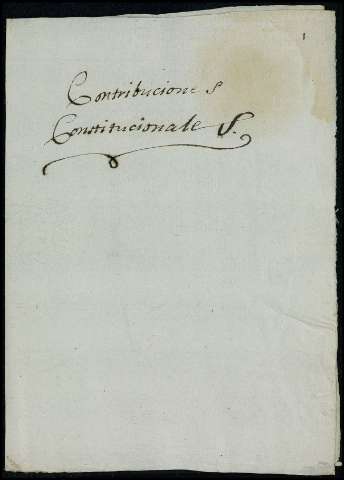 1
Contribuciones
Constitucionales.